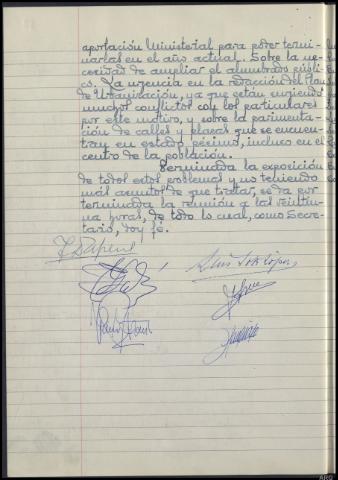 aportación Ministerial para poder termi-
narlas en el año actual. Sobre la ne-
cesidad de ampliar el alumbrado públi-
co. La urgencia en la redacción del Plan
de Urbanización, ya que están surgiendo
muchos conflictos con los particulares
por este motivo, y sobre la pavimenta-
ción de calles y plazas que se encuen-
tran en estado pésimo, incluso en el
centro de la población.
Terminada la exposición
de todos estos problemas y no teniendo
más asuntos de que tratar, se da por
terminada la reunión a las veintiu-
na horas, de todo lo cual, como Secre-
tario, doy fé.
Luis López